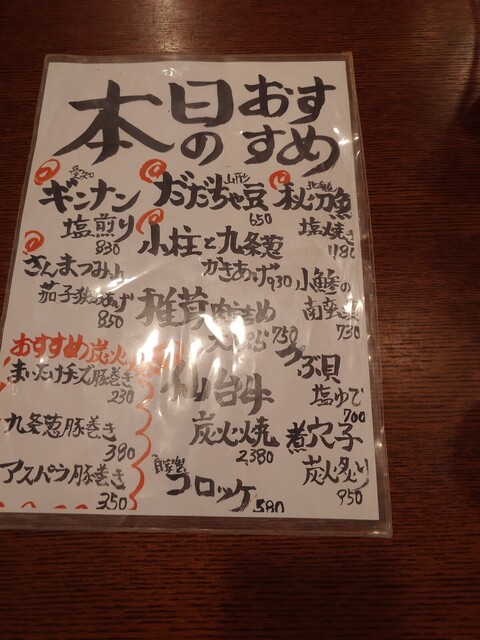 本日のおすすめ
北海道
秋刀魚
塩焼き
1180
小鯵の
南蛮漬
730
つぶ貝
塩ゆで
700
煮穴子
炭火炙り
950
山形
だだちゃ豆
650
小柱と九条葱
かきあげ930
椎茸肉詰め
750
仙台牛
炭火焼
2,380
自家製
コロッケ
580
ギンナン
塩煎り
830
さんまつみれ
茄子挟みあげ
850
おすすめ炭火
まいたけチーズ豚巻き
230
九条葱豚巻き
380
アスパラ豚巻き
350